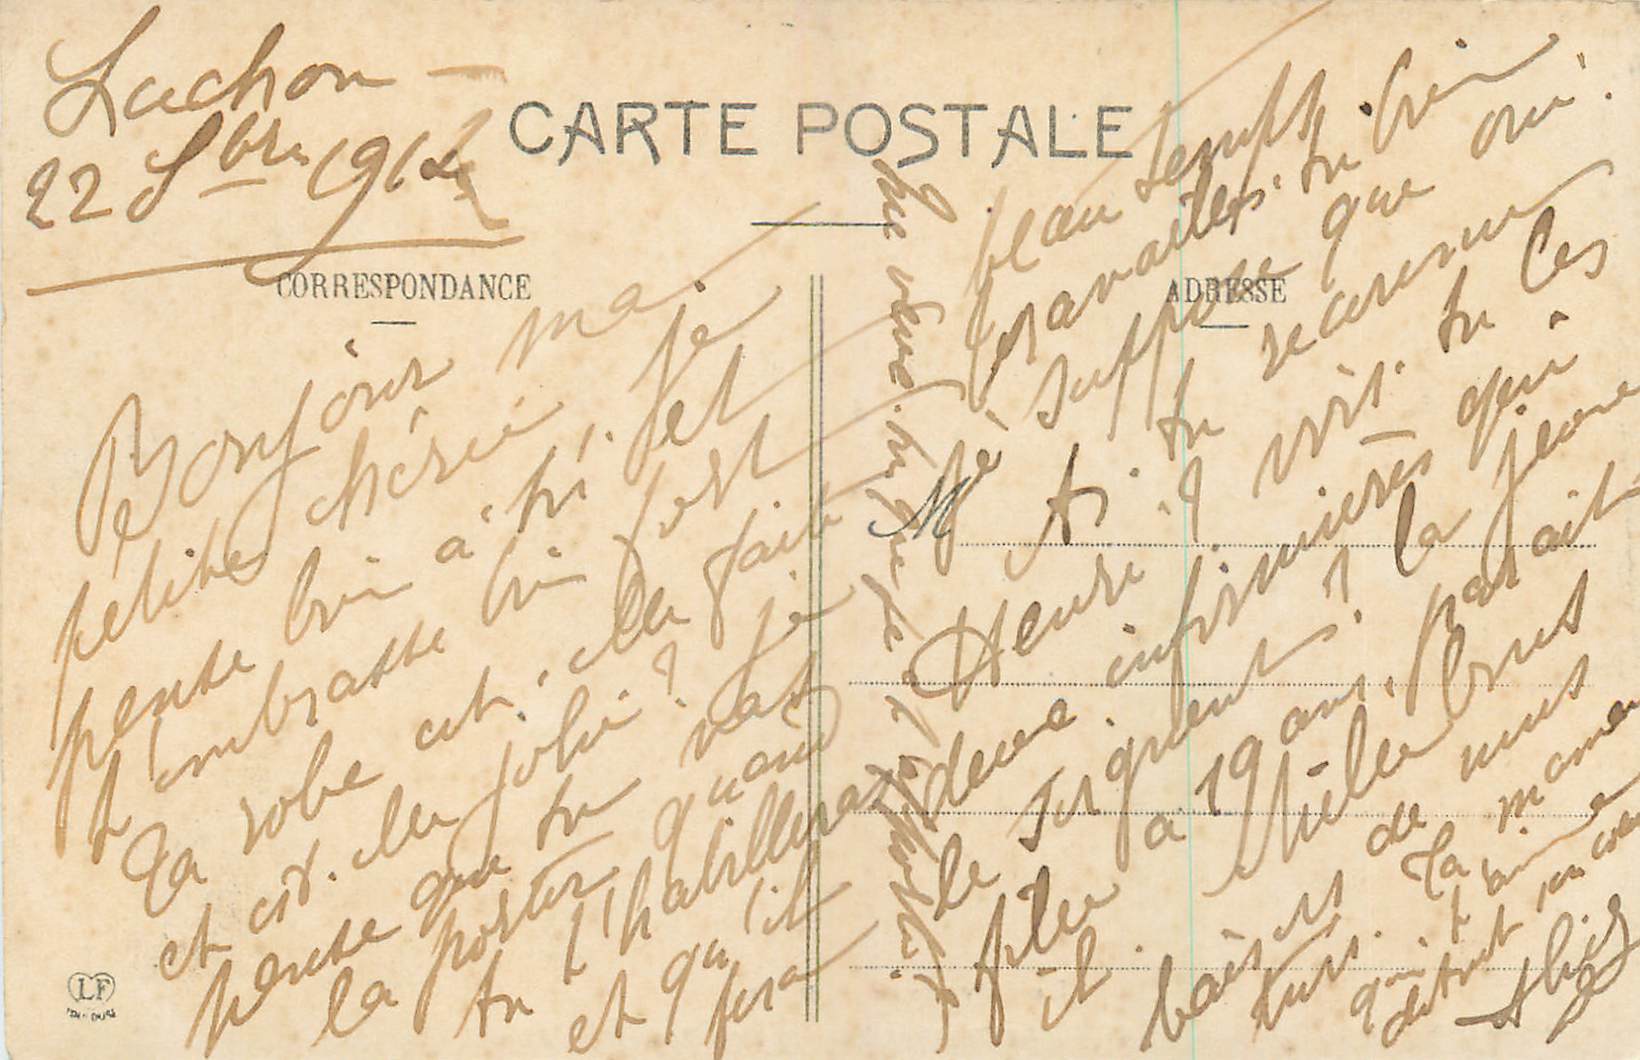 Luchon
22 Sbre 191
CARTE POSTALE
CORRESPONDANCE
ADRESSE
Bonjour ma
petite chérie Je
pense bien à toi. Et
t'embrasse bien fort
Ta robe est-elle faite
et est-elle jolie ? je
pense que tu vas
la porter quand
tu t'habilleras
et qu'il
fera
beau temps.
travailles-tu bien
Je suppose que oui.
As-tu reconnu
Henri ? vois-tu les
deux infirmières qui
le soignent ? la jeune
fille a 19 ans, paraît
il. Mille bons
baisers de nous
tous. Ta maman
qui t'aime
de tout son coeur
M
LF